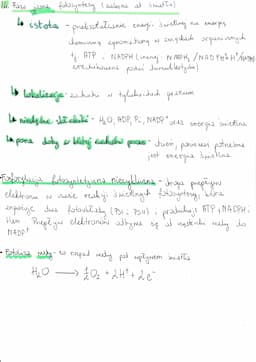 III. Faza jasna fotosyntezy (zależna od światła)
↳ istota - przekształcenie energii świetlnej na energię
chemiczną zgromadzoną w związkach organicznych
tj. ATP i NADPH (inaczej: NADPH₂ / NADPH+H⁺/
zredukowane
↳ lokalizacja - zachodzi w tylakoidach gran
↳ niezbędne składniki - H₂O, ADP, Pᵢ, NADP⁺ oraz energia świetlna
↳ pora doby w której zachodzi proces - dzień, ponieważ potrzebna
jest energia świetlna
Fosforylacja fotosyntetyczna niecykliczna - droga przepływu
elektronów w fazie reakcji świetlnych fotosyntezy, która
angażuje dwa fotoukłady (PSI i PSII) i produkuje ATP i NADPH i
tlen. Przepływ elektronów odbywa się od cząsteczki wody do
NADP⁺
• Fotoliza wody - to rozpad wody pod wpływem światła
H₂O ⟶ ½O₂ + 2H⁺ + 2e⁻